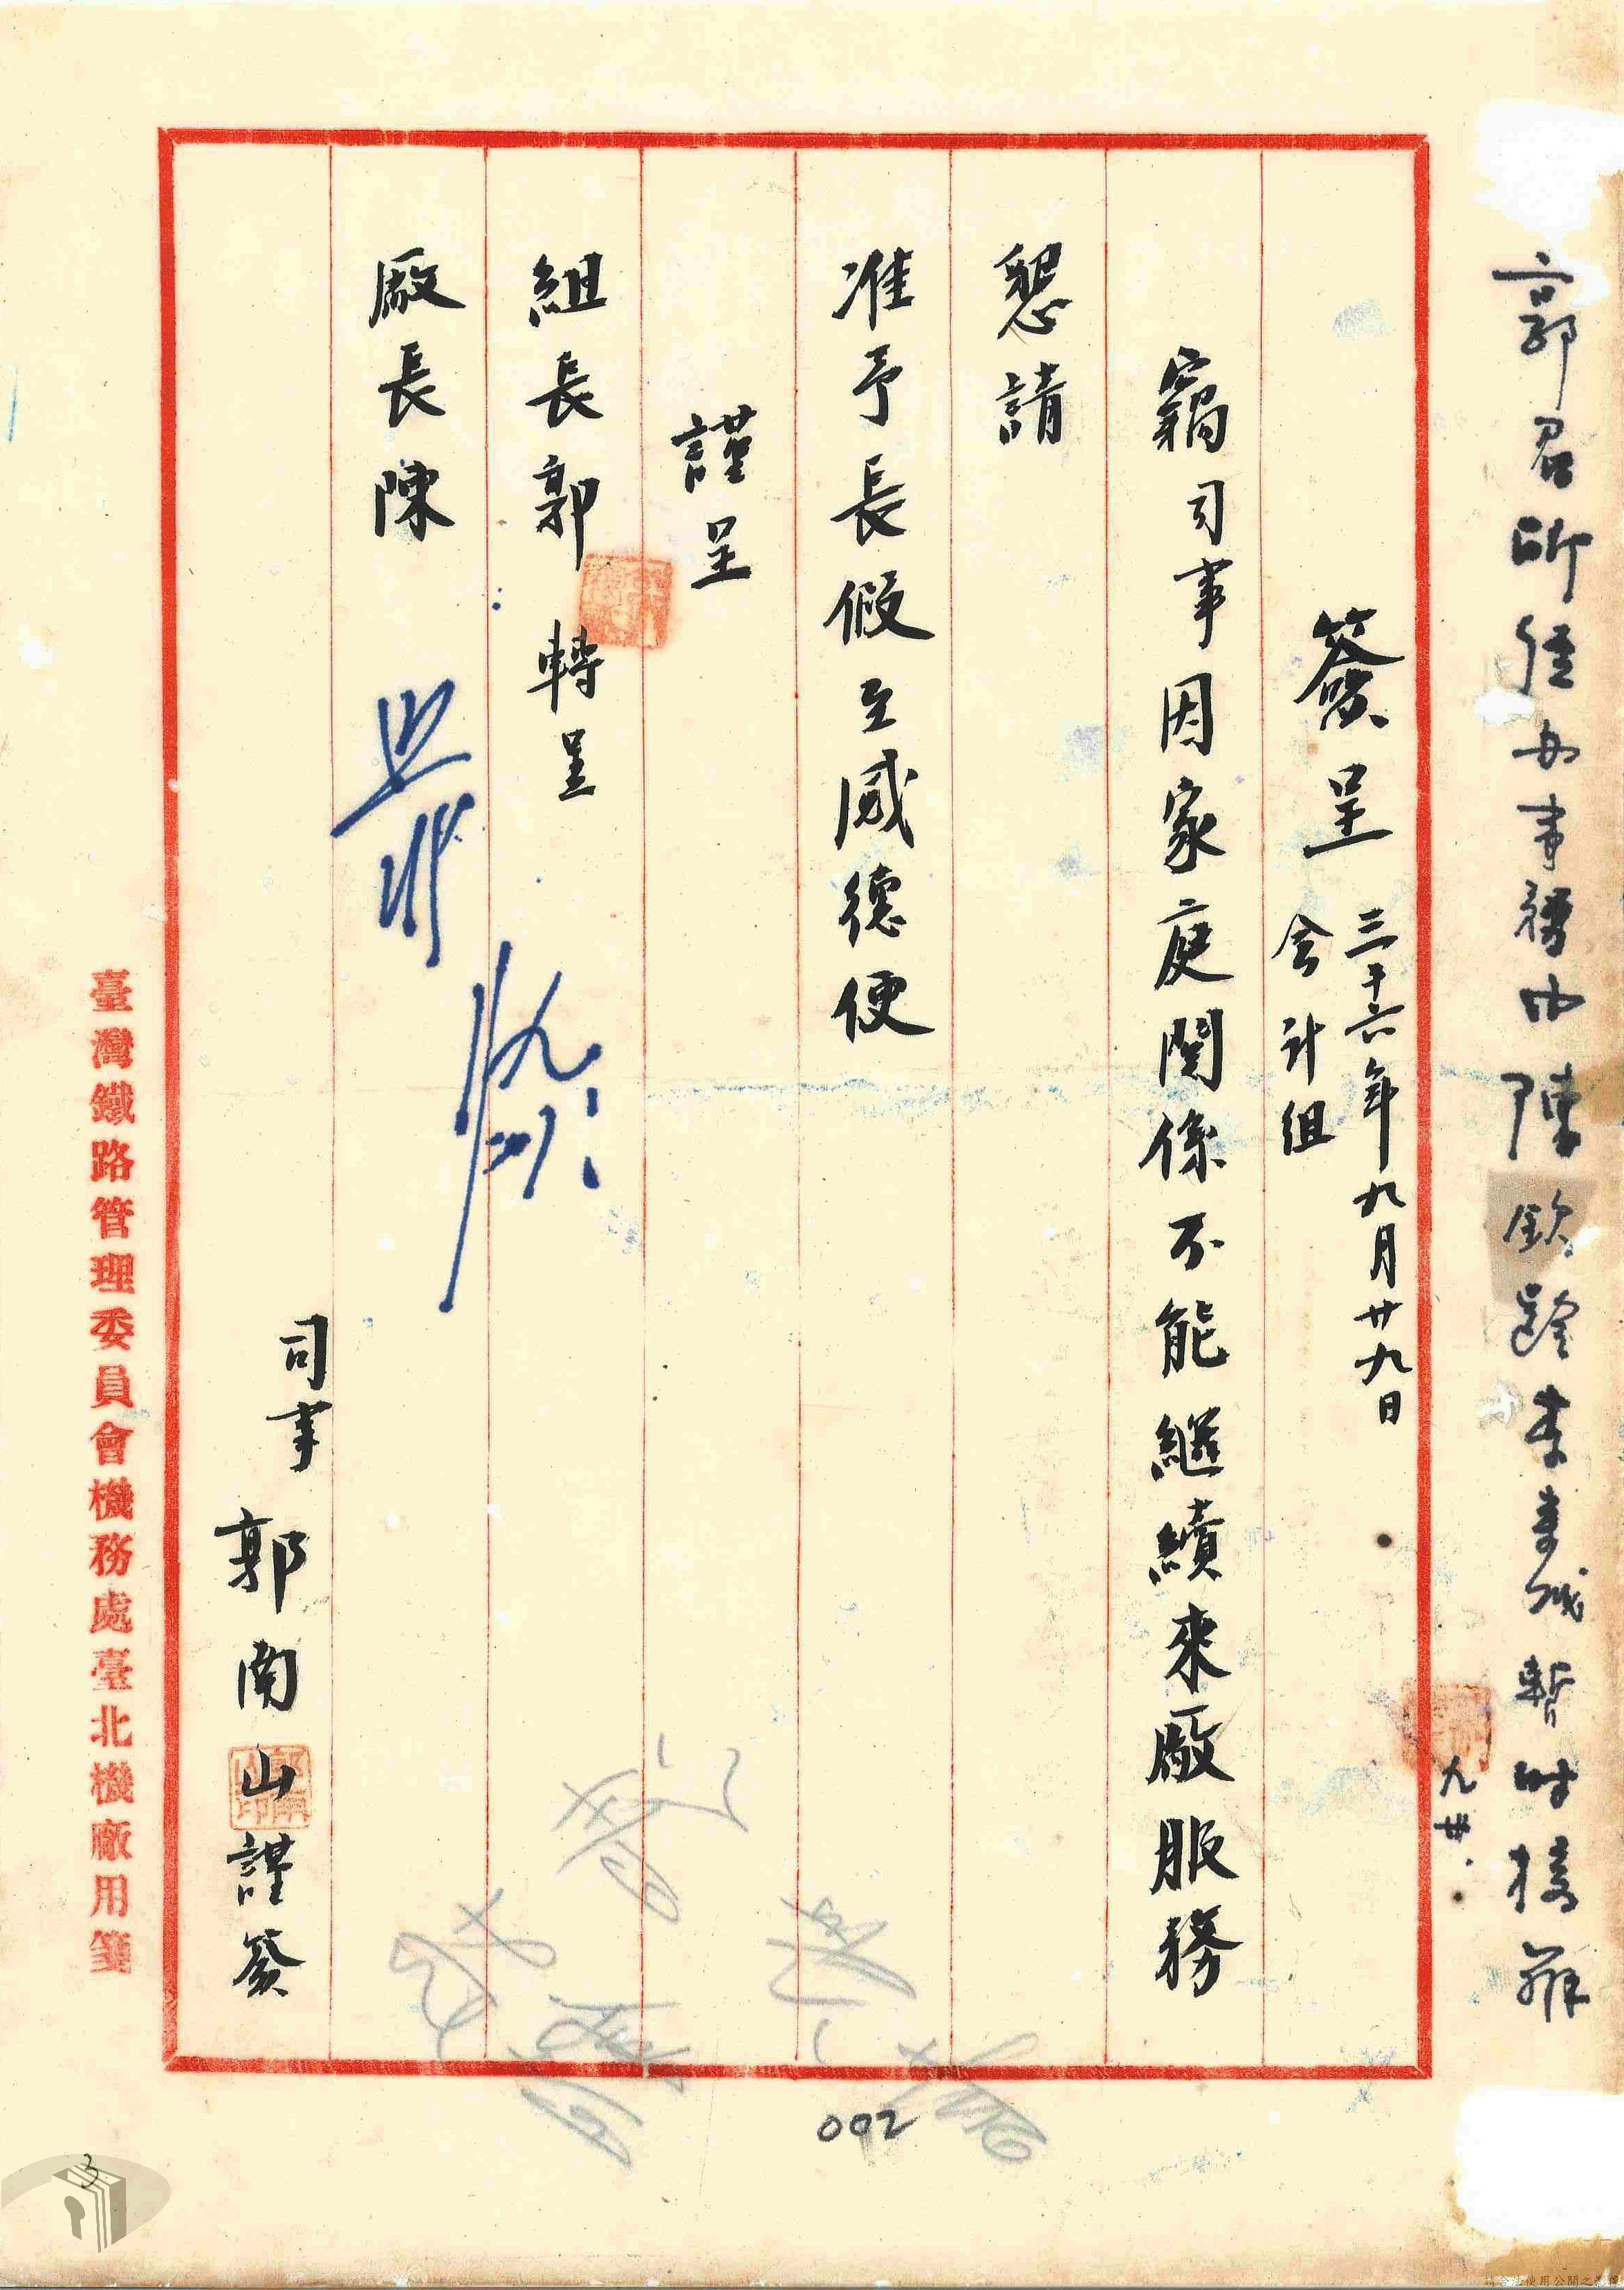 郭君所經办事務由陳欽鏗李春成暫時接辦
九卅
簽呈 三十六年九月廿九日
會計組
竊司事因家庭関係不能継續來廠服務
懇請
准予長假至感德便
謹呈
組長郭 轉呈
廠長陳
司事 郭南山謹簽
郭南山印
臺灣鐵路管理委員會機務處臺北機廠用箋
002
3